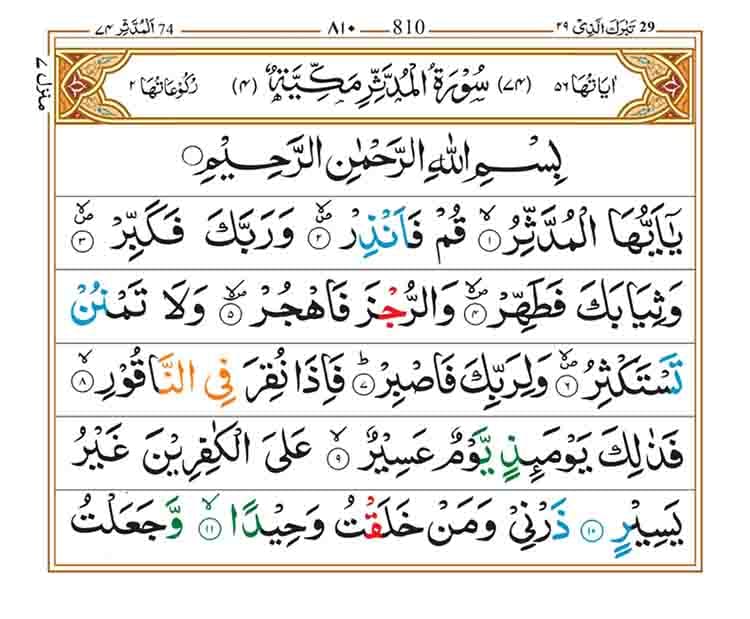 29 تَبٰرَكَ الَّذِیْ ۲۹ 810 ۸۱۰ 74 اَلْمُدَّثِّر ۷۴
اٰیَاتُهَا ۵۶ (۷۴) سُوْرَةُ الْمُدَّثِّرِ مَكِّیَّةٌ (۴) رُكُوْعَاتُهَا ۲
منزل ۷
بِسْمِ اللّٰهِ الرَّحْمٰنِ الرَّحِیْمِ
یٰۤاَیُّهَا الْمُدَّثِّرُ ۙ۝۱ قُمْ فَاَنْذِرْ ۪ۙ۝۲ وَرَبَّكَ فَكَبِّرْ ۪ۙ۝۳
وَثِیَابَكَ فَطَهِّرْ ۪ۙ۝۴ وَالرُّجْزَ فَاهْجُرْ ۪ۙ۝۵ وَلَا تَمْنُنْ
تَسْتَكْثِرُ ۪ۙ۝۶ وَلِرَبِّكَ فَاصْبِرْ ؕ۝۷ فَاِذَا نُقِرَ فِی النَّاقُوْرِ ۙ۝۸
فَذٰلِكَ یَوْمَىِٕذٍ یَّوْمٌ عَسِیْرٌ ۙ۝۹ عَلَی الْكٰفِرِیْنَ غَیْرُ
یَسِیْرٍ ۝۱۰ ذَرْنِیْ وَمَنْ خَلَقْتُ وَحِیْدًا ۙ۝۱۱ وَّجَعَلْتُ